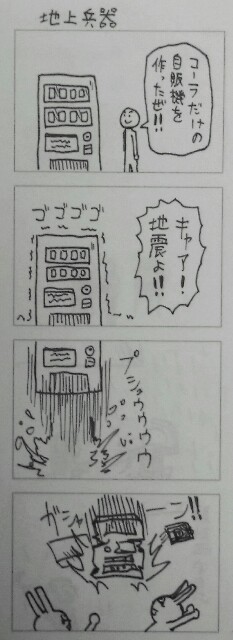 地上兵器
コーラだけの
自販機を
作ったぜ!!
ゴゴゴゴ
キャアー!
地震よ!!
プシュウウウウ
ガシャーン!!